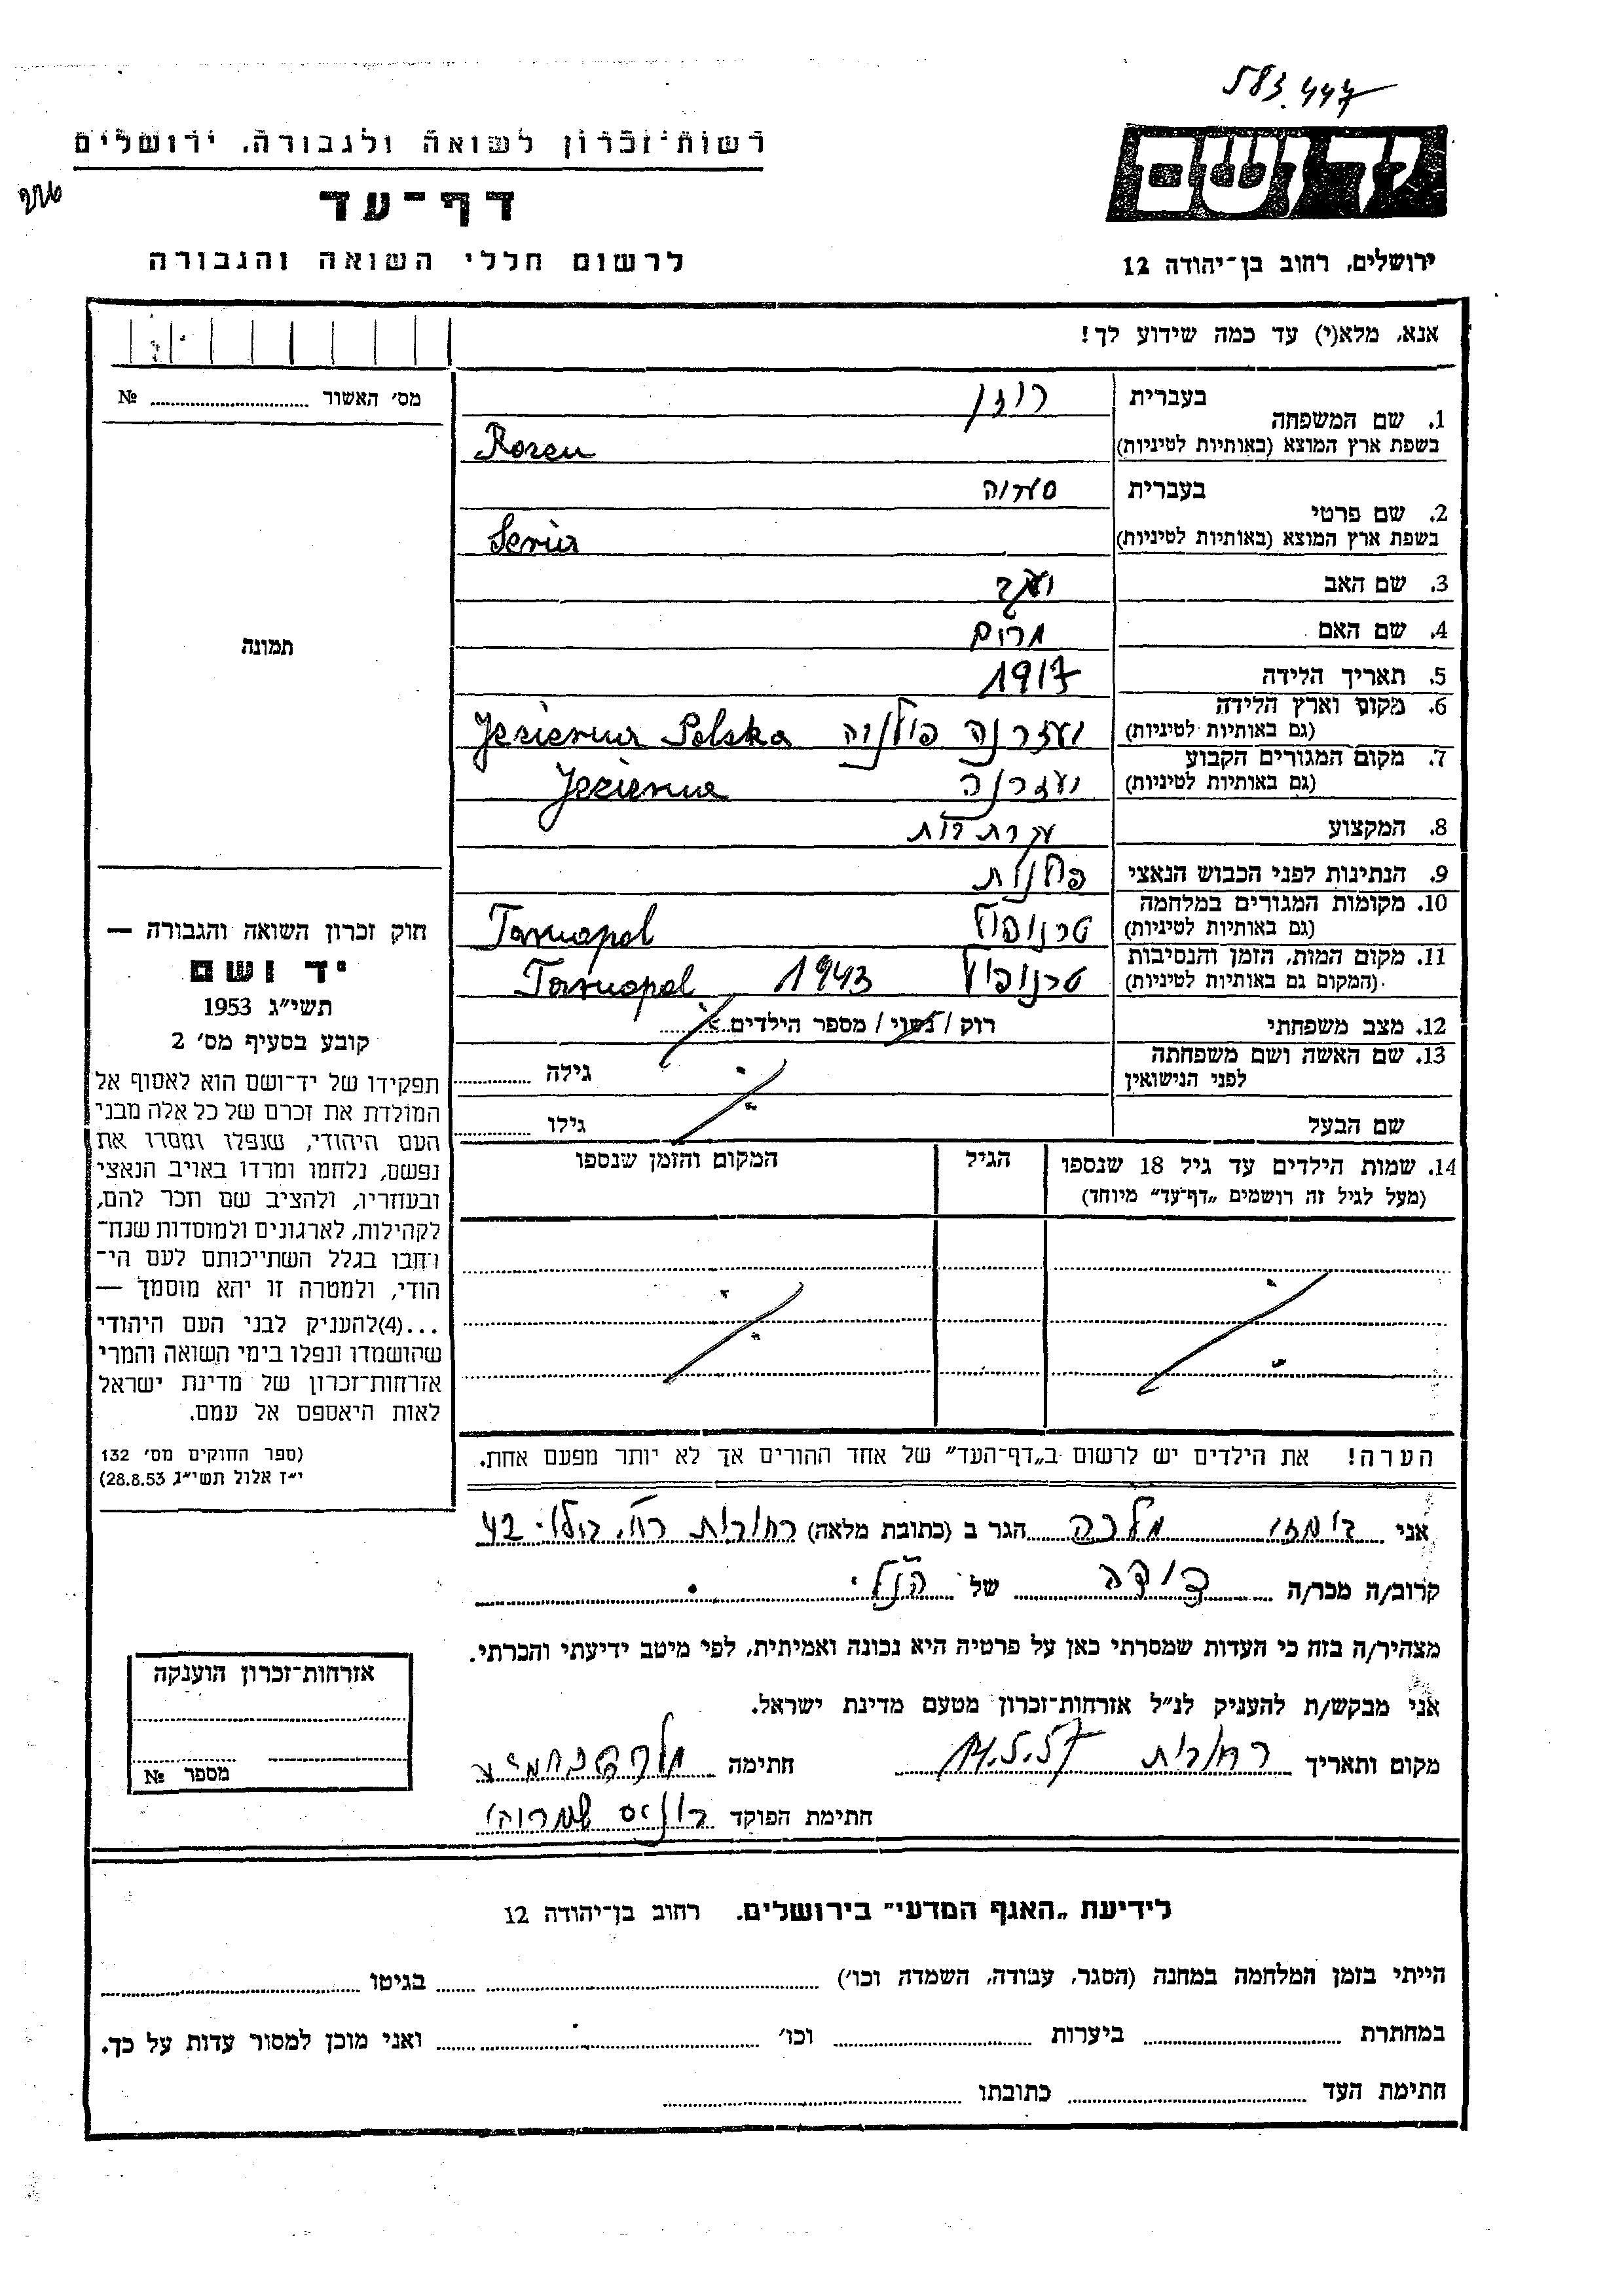 583.447
רשות-זכרון לשואה ולגבורה, ירושלים
דף-עד
לרשום חללי השואה והגבורה
יד ושם
ירושלים, רחוב בן-יהודה 12
אנא, מלא(י) עד כמה שידוע לך!
מס׳ האשור № 
תמונה
1. שם המשפחה בעברית רוזן
בשפת ארץ המוצא (באותיות לטיניות) Rozen
2. שם פרטי בעברית
בשפת ארץ המוצא (באותיות לטיניות)
3. שם האב
4. שם האם מרים
5. תאריך הלידה 1917
6. מקום וארץ הלידה (גם באותיות לטיניות) יזרנה פולניה Jezierna Polska
7. מקום המגורים הקבוע (גם באותיות לטיניות) יזרנה Jezierna
8. המקצוע עקרת בית
9. הנתינות לפני הכבוש הנאצי פולנית
10. מקומות המגורים במלחמה (גם באותיות לטיניות) טרנופול Tarnopol
11. מקום המות, הזמן והנסיבות (המקום גם באותיות לטיניות) טרנופול 1943 Tarnopol
12. מצב משפחתי רוק / נשוי / מספר הילדים
13. שם האשה ושם משפחתה לפני הנישואין גילה
שם הבעל גילו
14. שמות הילדים עד גיל 18 שנספו
(מעל לגיל זה רושמים „דף-עד״ מיוחד)
הגיל
המקום והזמן שנספו
חוק זכרון השואה והגבורה —
יד ושם
תשי״ג 1953
קובע בסעיף מס׳ 2
תפקידו של יד-ושם הוא לאסוף אל
המולדת את זכרם של כל אלה מבני
העם היהודי, שנפלו ומסרו את
נפשם, נלחמו ומרדו באויב הנאצי
ובעוזריו, ולהציב שם וזכר להם,
לקהילות, לארגונים ולמוסדות שנח-
רבו בגלל השתייכותם לעם הי-
הודי, ולמטרה זו יהא מוסמך —
...(4)להעניק לבני העם היהודי
שהושמדו ונפלו בימי השואה והמרי
אזרחות-זכרון של מדינת ישראל
לאות היאספם אל עמם.
(ספר החוקים מס׳ 132
י״ז אלול תשי״ג 28.8.53)
הערה! את הילדים יש לרשום ב„דף-העד״ של אחד ההורים אך לא יותר מפעם אחת.
אני מלכה הגר ב (כתובת מלאה) רחובות רח׳ 42
קרוב/ה מכר/ה דודה של הנ״ל
מצהיר/ה בזה כי העדות שמסרתי כאן על פרטיה היא נכונה ואמיתית, לפי מיטב ידיעתי והכרתי.
אני מבקש/ת להעניק לנ״ל אזרחות-זכרון מטעם מדינת ישראל.
מקום ותאריך רחובות 14.5.57 חתימה
חתימת הפוקד
אזרחות-זכרון הוענקה
מספר №
לידיעת „האגף המדעי״ בירושלים. רחוב בן-יהודה 12
הייתי בזמן המלחמה במחנה (הסגר, עבודה, השמדה וכו׳) בגיטו
במחתרת ביערות וכו׳ ואני מוכן למסור עדות על כך.
חתימת העד כתובתו